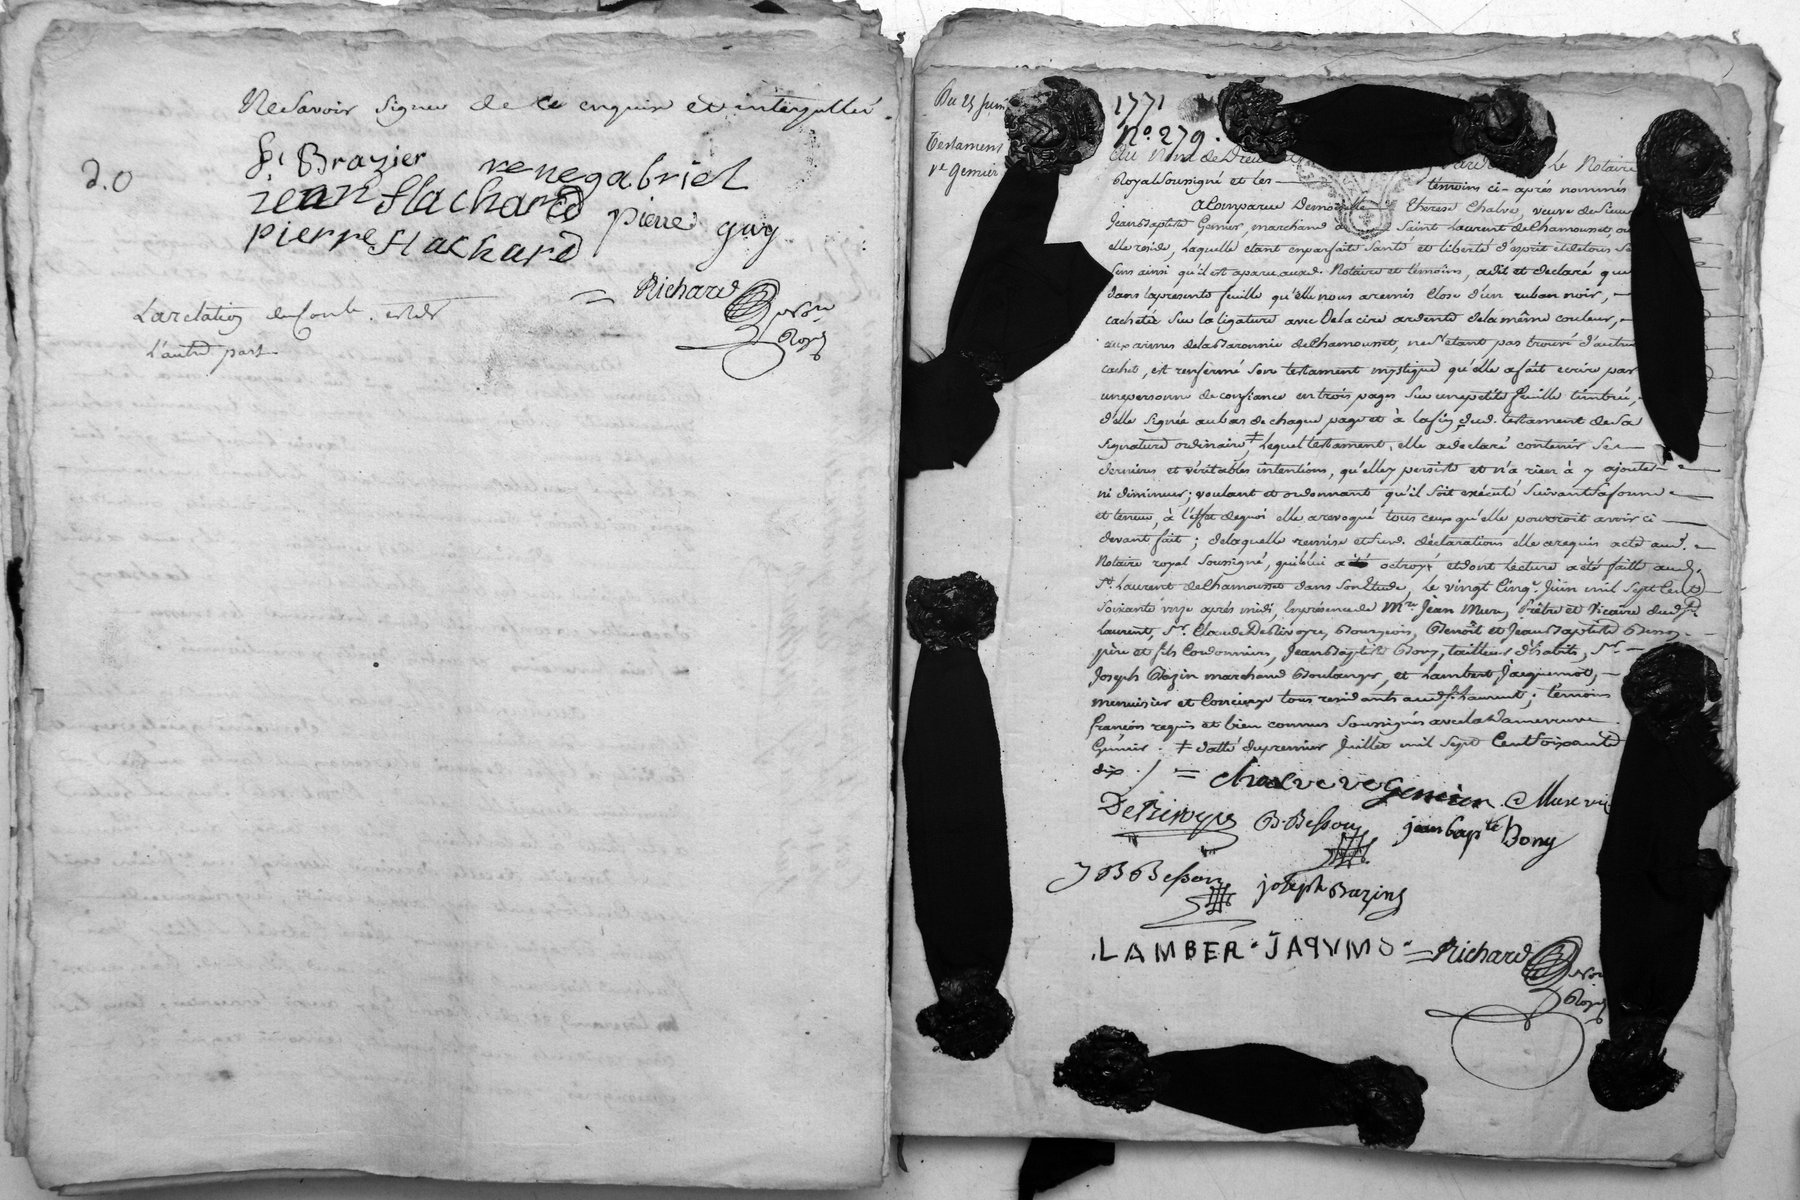 Ne savoir signer de ce enquis et interpellé.
2.0
Sr Brazier
rene gabriel
jean flachard
pierre guy
pierre flachard
Richard
No.re
Royal
L'autre part
Du 25 Juin
1771
No. 279.
Testament
Ve Gemier
Au Nom de Dieu le Notaire
Royal Soussigné et les témoins ci-après nommés
a Comparue Demoiselle Therese Chalve, veuve de sieur
Jean Baptiste Gemier, marchand Saint Laurent de Chamousset, ou
elle reside, Laquelle étant en parfaite Santé et liberté d'esprit et de tous Se
Sens ainsi qu'il est aparu aux d. Notaire et témoins, a dit et declaré que
dans la presente feuille qu'elle nous a remis Close d'un ruban noir,
cachetée Sur la ligature avec De la cire ardente de la même couleur,
aux armes de la Baronnie de Chamousset, ne s'etant pas trouvé d'autre
cachet, est renfermé Son testament mystique qu'elle a fait ecrire par
une personne de confiance en trois pages Sur une petite feuille timbrée,
d'elle Signée au bas de chaque page et à la fin dud. testament de Sa
Signature ordinaire ‡ Lequel testament, elle a declaré contenir Ses
dernieres et véritables intentions, qu'elle y persiste et n'a rien à y ajouter
ni diminuer; voulant et ordonnant qu'il Soit exécuté Suivant Sa forme
et teneur, à l'effet de quoi elle a revoqué tous ceux qu'elle pourroit avoir ci
devant fait; de laquelle remise et susd. déclarations elle a requis acte aud.
Notaire royal Soussigné, qui le lui a été octroyé et dont Lecture a été faite aud.
St. Laurent de Chamousset dans Son Etude, Le vingt Cinq Juin mil Sept Cents
Soixante onze après midi, En présence de Mre Jean Mure, Prêtre et Vicaire dud. St
Laurent, Sr. Claude DeRivoyre, Bourgeois, Benoît et Jean Baptiste Besson
père et fils Cordonniers, Jean Baptiste Bony, tailleur d'habits, Sr.
Joseph Bazin marchand Boulanger, et Lambert Jacquemot,
menuisier et Concierge tous residants aud. St. Laurent; témoins
francois requis et bien connus Soussignés avec la Dame veuve
Gemier. ‡ datté du premier Juillet mil Sept Cent Soixante
dix. /
chalve ve Gemier
Mure vic
DeRivoyre
B. Besson
jean bapte Bony
J B Besson
joseph Bazin
.LAMBER . JAPVMO.
Richard
No.re
Royal